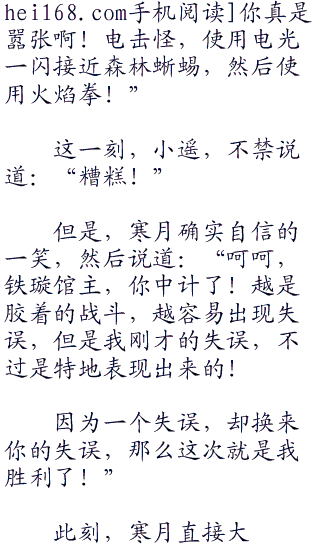 hei168.com手机阅读]你真是
嚣张啊！电击怪，使用电光
一闪接近森林蜥蜴，然后使
用火焰拳！”
这一刻，小遥，不禁说
道：“糟糕！”
但是，寒月确实自信的
一笑，然后说道：“呵呵，
铁璇馆主，你中计了！越是
胶着的战斗，越容易出现失
误，但是我刚才的失误，不
过是特地表现出来的！
因为一个失误，却换来
你的失误，那么这次就是我
胜利了！”
此刻，寒月直接大